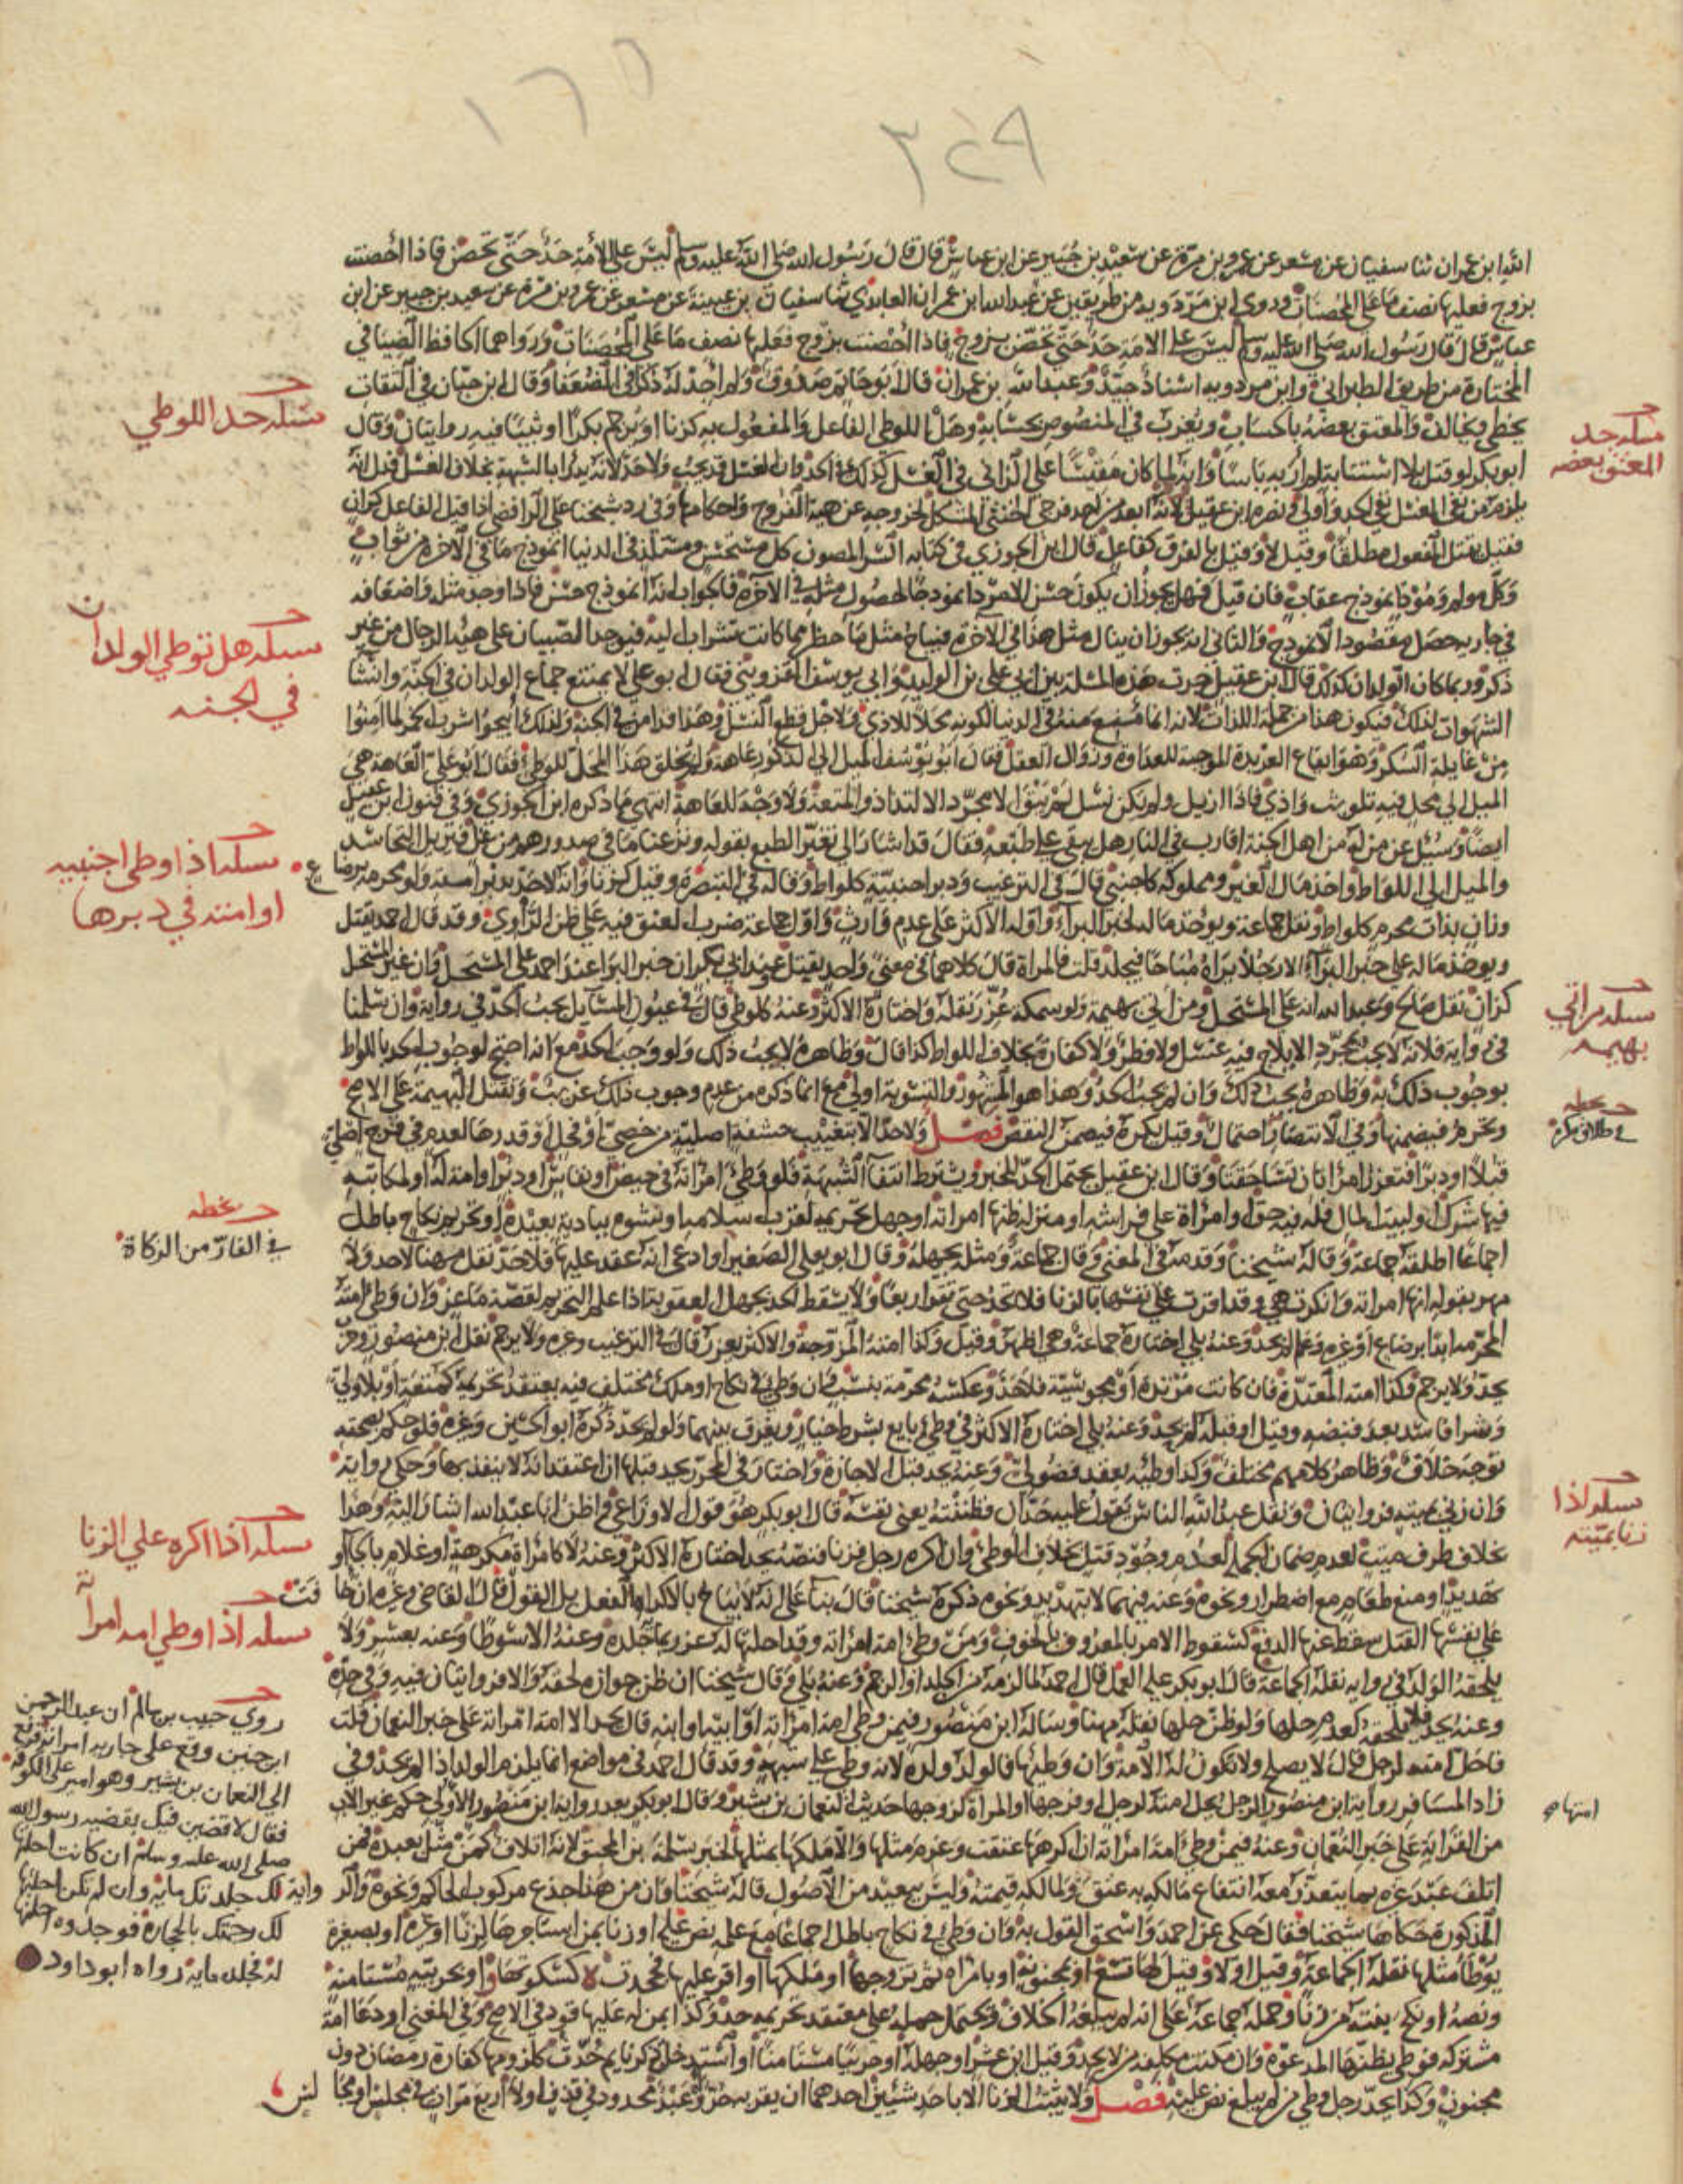 ١٦٥
٣٤٩
الله ابن عمران ثنا سفيان عن مسعر عن عمرو بن مرة عن سعيد بن جبير عن ابن عباس قال قال رسول الله صلى الله عليه وسلم ليس على الأمة حد حتى تحصن فاذا أحصنت
بزوج فعليها نصف ما على المحصنات وروى ابن مردويه من طريقين عن عبدالله ابن عمران العابدي ثنا سفيان بن عيينة عن مسعر عن عمرو بن مرة عن سعيد بن جبير عن ابن
عباس قال قال رسول الله صلى الله عليه وسلم ليس على الامة حد حتى تحصن بزوج فاذا احصنت بزوج فعليها نصف ما على المحصنات ورواهما الحافظ الضيا في
المختارة من طريق الطبراني وابن مردويه اسناد جيد وعبدالله بن عمران قال ابو حاتم صدوق ولم اجد له ذكرا في الضعفا وقال ابن حبان في الثقات
يخطي ويخالف والمعتق بعضه بالحساب ويغرب في المنصوص بحسابه وهل اللوطي الفاعل والمفعول به كزنا او يرجم بكرا او ثيبا فيه روايتان وقال
ابو بكر لو قتل بلا استتابة لم أر به باسا وانه لما كان مقيسا على الزاني في الغسل كذلك في الحد وان الغسل قد يجب ولا حد لانه يدرا بالشبهة بخلاف الغسل فدل انه
يلزم من نفي الغسل نفي الحد وأولى ونصره ابن عقيل لانه ابعد من احد فرجي الخنثى المشكل لخروجه عن هيئة الفروج واحكامها وفي رد شيخنا على الرافضي اذا قتل الفاعل كزان
فقيل يقتل المفعول مطلقا وقيل لا وقيل بالفرق كفاعل قال ابن الجوزي في كتابه السر المصون كل مستحسن ومستلذ في الدنيا انموذج ما في الآخرة من ثواب
وكل مولم ومؤذ انموذج عقاب فان قيل فهل يجوز ان يكون حسن الامرد انموذجا لحصول مثله في الآخرة فالجواب انه انموذج حسن فاذا وجد مثله واضعافه
في جاريه حصل مقصود الانموذج والثاني انه يجوز ان ينال مثل هذا في الآخرة فيباح مثل ما حظر مما كانت تشراب اليه فيوجد الصبيان على هيئة الرجال من غير
ذكر وربما كان الولدان كذلك قال ابن عقيل جرت هذه المسلة بين ابي علي بن الوليد وابي يوسف القزويني فقال ابو علي لا يمتنع جماع الولدان في الجنة وانشا
الشهوات لذلك فيكون هذا من جملة اللذات لانه انما منع منه في الدنيا لكونه محلا للاذي ولاجل قطع النسل وهذا قد امن في الجنة ولذلك أبيحوا شرب الخمر لما امنوا
من غايلة السكر وهو ايقاع العربدة الموجبة للعداوة وزوال العقل فقال ابو يوسف الميل الى الذكور عاهة ولم يخلق هذا المحل للوطي فقال ابو علي العاهة هي
الميل الى محل فيه تلويث واذي فاذا ازيل ولم يكن نسل لم يبق الا مجرد الالتذاذ والمتعة ولا وجه للعاهة انتهى ما ذكره ابن الجوزي وفي فنون ابن عقيل
ايضا وسئل عن من له من اهل الجنة اقارب في النار هل يبقى على طبعه فقال قد اشار الى تغير الطبع بقوله ونزعنا ما في صدورهم من غل فيزيل التحاسد
والميل الى اللواط واخذ مال الغير ومملوكه كاجنبي قال في الترغيب ودبر اجنبية كلواط وقاله في التبصرة وقيل كزنا وانه لا حد بدبر امته ولو محرمة برضاع
وزان بذات محرم كلواط ونقل جماعة ويوخذ ماله لخبر البرآء واوله الاكثر على عدم وارث واول جماعة ضرب العنق فيه على ظن الراوي وقد قال احمد يقتل
ويوخذ ماله على خبر البرآء الا رجلا يراه مباحا فيجلد قلت فالمراة قال كلاهما في معنى واحد يقتل عند ابي بكر ان خبر البرا عند احمد على المستحل وان غير المستحل
كزان نقل صالح وعبدالله انه على المستحل ومن اتى بهيمة ولو سمكة عزر نقله واختاره الاكثر وعنه كلوطي قال في عيون المسايل يجب الحد في رواية وان سلمنا
في رواية فلانه لا يجب بمجرد الايلاج فيه غسل ولا فطر ولا كفارة بخلاف اللواط كذا قال وظاهره لا يجب ذلك ولو وجب الحد مع انه احتج لوجوب الحد باللواط
بوجوب ذلك به وظاهره يجب ذلك وان لم يجب الحد وهذا هو المشهور والتسوية اولى مع انما ذكره من عدم وجوب ذلك عن ميت وتقتل البهيمة على الاصح
ويحرم فيضمنها وفي الانتصار احتمال وقيل يكره فيضمن النقص فصل ولا حد الا بتغييب حشفة اصلية من خصي او فحل او قدرها لعدم في فرج اصلي
قبلا او دبرا فتعزر امراتان تساحقتا وقال ابن عقيل يحتمل الحد للخبر ويشترط انتفآ الشبهة فلو وطئ امراته في حيض او نفاس او دبر او امة له او لمكاتبه
فيها شرك او لبيت المال فله فيه حق او امراة على فراشه او منزله ظنها امراته او جهل تحريمه لقرب اسلامه او نشوه ببادية بعيدة او تحريم نكاح باطل
اجماعا اطلقه جماعة وقاله شيخنا وقدمه في المغني وقال جماعة ومثله يجهله وقال ابو يعلى الصغير او ادعى انه عقد عليها فلا حد نقل مهنا لا حد ولا
مهر بقوله انها امراته وانكرت هي وقد اقرت على نفسها بالزنا فلا تحد حتى تقر اربعا ولا يسقط الحد بجهل العقوبة اذا علم التحريم لقصة ماعز وان وطئ امته
المحرمة ابدا برضاع او غيره وعلم لم يحد وعنه بلى اختاره جماعة وهي اظهر وقيل وكذا امته المزوجة والاكثر يعزر قال في الترغيب وغيره ولا يرجم نقل ابن منصور وحرب
يحد ولا يرجم وكذا امته المعتدة فان كانت مرتدة او مجوسية فلا حد وعكسه محرمة بنسب فان وطئ في نكاح او ملك مختلف فيه يعتقد تحريمه كمتعة او بلا ولي
وشرا فاسد بعد قبضه وقيل او قبله لم يحد وعنه بلى اختاره الاكثر في وطئ بايع بشرط خيار ويفرق بينهما ولو لم يحد ذكره ابو الحسين وغيره فلو حكم بصحته
توجه خلاف وظاهر كلامهم مختلف وكذا وطئه بعقد فضولي وعنه يحد قبل الاجازة واختار في المحرر يحد قبلها ان اعتقد انه لا ينفذ بها وحكي رواية
وان زنى بميتة فروايتان ونقل عبدالله الناس يقول عليه حدان فظننته يعني نفسه قال ابو بكر هو قول الاوزاعي واظن ابا عبدالله اشار اليه وهذا
بخلاف طرف ميت لعدم ضمان الجملة لعدم وجود قتل بخلاف الوطئ وان اكره رجل فزنا فنصه يحد اختاره الاكثر وعنه لا كامراة مكرهة او غلام بالجآء او
تهديد او منع طعام مع اضطرار ونحوه وعنه فيهما لا بتهديد ونحوه ذكره شيخنا قال بنا على انه لا يباح بالاكراه الفعل بل القول قال القاضي وغيره ان خافت
على نفسها القتل سقط عنها الدفع كسقوط الامر بالمعروف بالخوف ومن وطئ امة امراته وقد احلتها له عزر بمائة جلدة وعنه الا سوطا وعنه بعشر ولا
يلحقه الولد في رواية نقله الجماعة قال ابو بكر عليه العمل قال احمد لما لزمه من الجلد او الرجم وعنه بلى وقال شيخنا ان ظن جوازه لحقه والا فروايتان فيه وفي حده
وعنه يحد فلا يلحقه كعدم حلها ولو ظن حلها نقله مهنا وساله ابن منصور فيمن وطئ امة امراته او ابيه او ابنه قال يحد الا امة امراته على خبر النعمان قلت
فاحل امته لرجل قال لا يصلح ولا تكون له الامة وان وطئها فالولد ولده لانه وطئ على شبهة وقد قال احمد في مواضع انما يلزم الولد اذا لم يحد وفي
زاد المسافر رواية ابن منصور الرجل يحل امته لرجل او فرجها او المراة لزوجها حديث النعمان بن بشير وقال ابو بكر بعد رواية ابن منصور الاولى حكم غير الاب
من القرابة على خبر النعمان وعنه فيمن وطئ امة امراته ان اكرهها عتقت وغرم مثلها والا ملكها بمثلها لخبر سلمة بن المحبق لانه اتلاف كمن مثل بعبده فمن
اتلف عبد غيره بما يتعذر معه انتفاع مالكه به عتق ولمالكه قيمته وليس ببعيد من الاصول قاله شيخنا وان من هذا جذع مركوب الحاكم ونحوه والرواية
المذكورة حكاها شيخنا فقال حكي عن احمد واسحق القول به وان وطئ في نكاح باطل اجماعا مع علمه نص عليه او زنا بمن استاجرها لزنا او غيره او بصغيرة
يوطا مثلها نقله الجماعة وقيل او لا وقيل لها تسع او مجنونة او بامراة ثم تزوجها او ملكها او اقر عليها فجحدت لا كسكوتها او بحربية مستامنة
ونصه او نكح بنته من زنا وحمله جماعة على انه لم يبلغه الخلاف ويحتمل حمله على معتقد تحريمه حد وكذا بمن له عليها قود في الاصح وفي المغني او دعا امة
مشتركة فوطئ يظنها المدعوة وان مكنت مكلفة من لا يحد وقيل ابن عشر او جهله او حربيا مستامنا او استدخلت ذكر نايم حدت كلزومها كفارة رمضان دون
مجنون وكذا يحد رجل وطئ من لم يبلغ نص عليه فصل ولا يثبت الزنا الا باحد شيئين احدهما ان يقر به حر او عبد محدود في قذف اولا اربع مرات في مجلس او مجالس
مسله حد
المعتق بعضه
مسله حد اللوطي
مسله هل توطي الولدان
في الجنه
مسله اذا وطي اجنبيه
او امته في دبرها
مسله من اتي
بهيمه
بخطه
بخطه
في الفار من الزكاة
مسله اذا
زنا بميته
مسله اذا اكره علي الزنا
مسله اذا وطي امه امراته
امتها
روي حبيب بن سالم ان عبدالرحمن
ابن حنين وقع علي جاريه امراته فرفع
الي النعمان بن بشير وهو امير علي الكوفه
فقال لاقضين فيك بقضيه رسول الله
صلي الله عليه وسلم ان كانت احلتها
لك جلدتك مايه وان لم تكن احلتها
لك رجمتك بالحجاره فوجدوه احلتها
له فجلده مايه رواه ابو داود